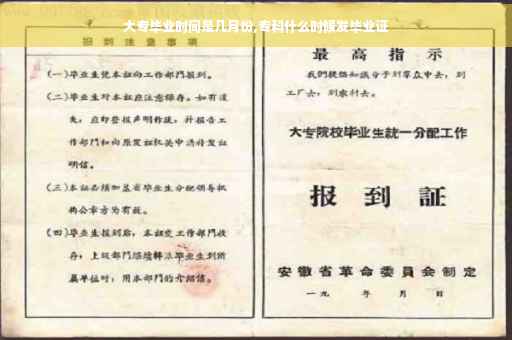 大专毕业时间是几月份,专科什么时候发毕业证
报到注意事项
(一)毕业生凭本证向工作部门报到。
(二)毕业生对本证应注意保存。如有遗
失,应即登报声明作废,并报告工
作部门和向原发证机关申请补发证
明信。
(三)本证必须加盖省毕业生分配领导机
构公章方为有效。
(四)毕业生报到后,本证交工作部门收
存;上级部门继续转派毕业生到所
属单位时,用本部门的介绍信。
最高指示
我们提倡知识分子到群众中去,到
工厂去,到农村去。
大专院校毕业生統一分配工作
报到証
安徽省革命委員会制定
一九 年 月 日